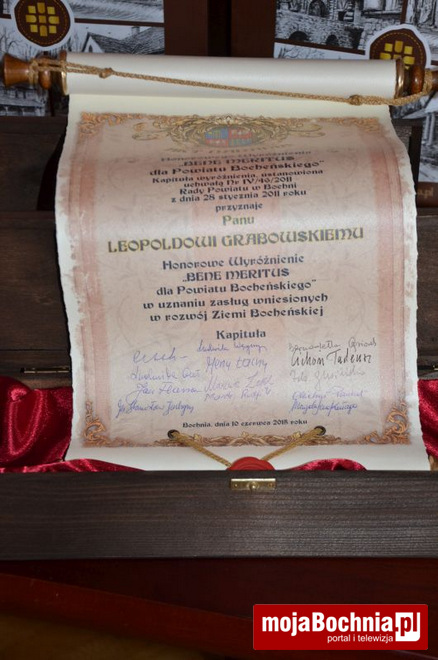 Honorowego Wyróżnienia
„BENE MERITUS
dla Powiatu Bocheńskiego"
Kapituła wyróżnienia, ustanowiona
uchwałą Nr IV/46/2011
Rady Powiatu w Bochni
z dnia 28 stycznia 2011 roku
przyznaje
Panu
LEOPOLDOWI GRABOWSKIEMU
Honorowe Wyróżnienie
„BENE MERITUS
dla Powiatu Bocheńskiego"
w uznaniu zasług wniesionych
w rozwój Ziemi Bocheńskiej
Kapituła
Bochnia, dnia 10 czerwca 2018 roku
mojaBochnia.pl
portal i telewizja